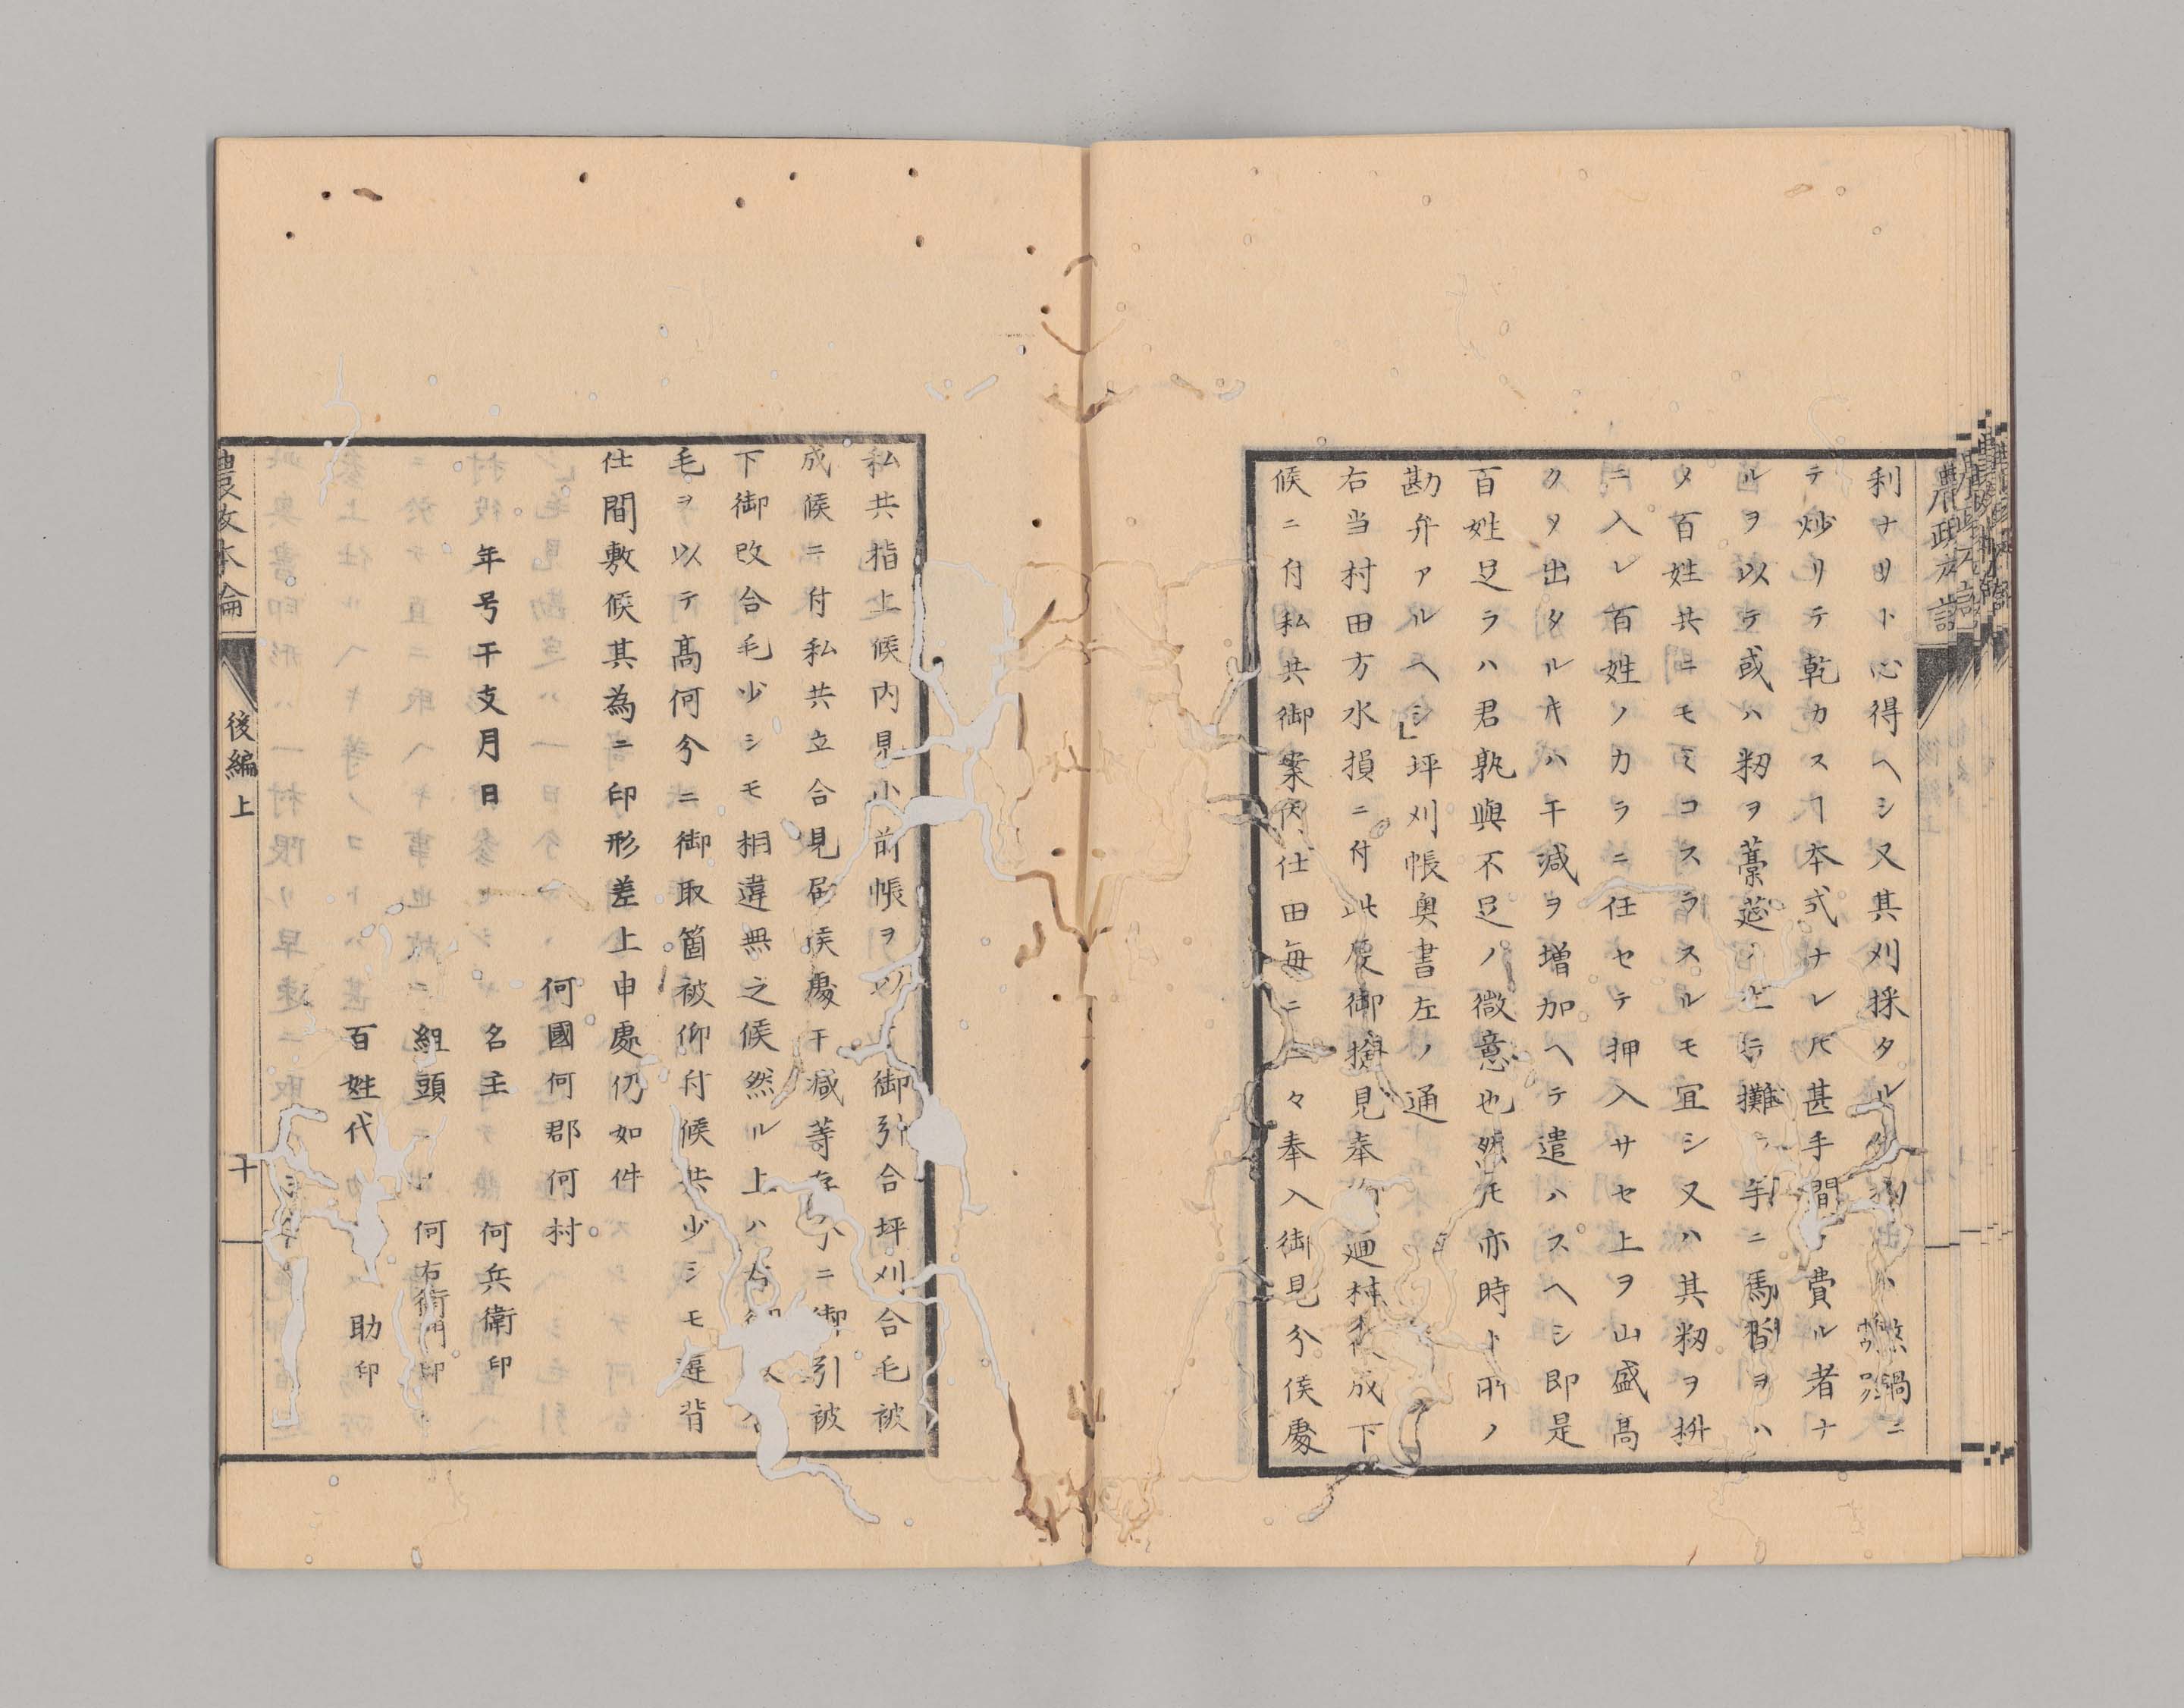 利ナリト心得ヘシ又其刈採タル
煞鍋ニ
テ炒リテ乾カスヿ本式ナレ𪜈甚手間
費ル者ナ
ルヲ以テ或ハ籾ヲ藁莚ノ上ニ攤ラ
ニ馬沓ヲハ
メ百姓共ニモミコスラスルモ宜シ又ハ其籾ヲ枡
ニ入レ百姓ノカラニ任セテ押入サセ上ヲ山盛高
クヌ出タルキハ干減ヲ増加ヘテ遣ハスヘシ即是
百姓足ラハ君孰與不足ノ微意也然𪜈亦時ト所ノ
勘弁アルヘシ坪刈帳奥書左ノ通
右当村田方水損ニ付此度御撿見奉
廻村被成下
候ニ付私共御案内仕田毎ニ一々奉入御見分候處
私共指上候内見小前帳ヲ以
御引合坪刈合毛被
成候ニ付私共立合見届候處干減等
ニ御引被
下御改合毛少シモ相違無之候然ル上ハ右御
毛ヲ以テ高何分ニ御取箇被仰付候共少シモ違背
仕間敷候其為ニ印形差上申處仍如件
何國何郡何村
年号干支月日
名主
何兵衛印
組頭
何右衛門印
百姓代
助印
農政本論
後編上
十